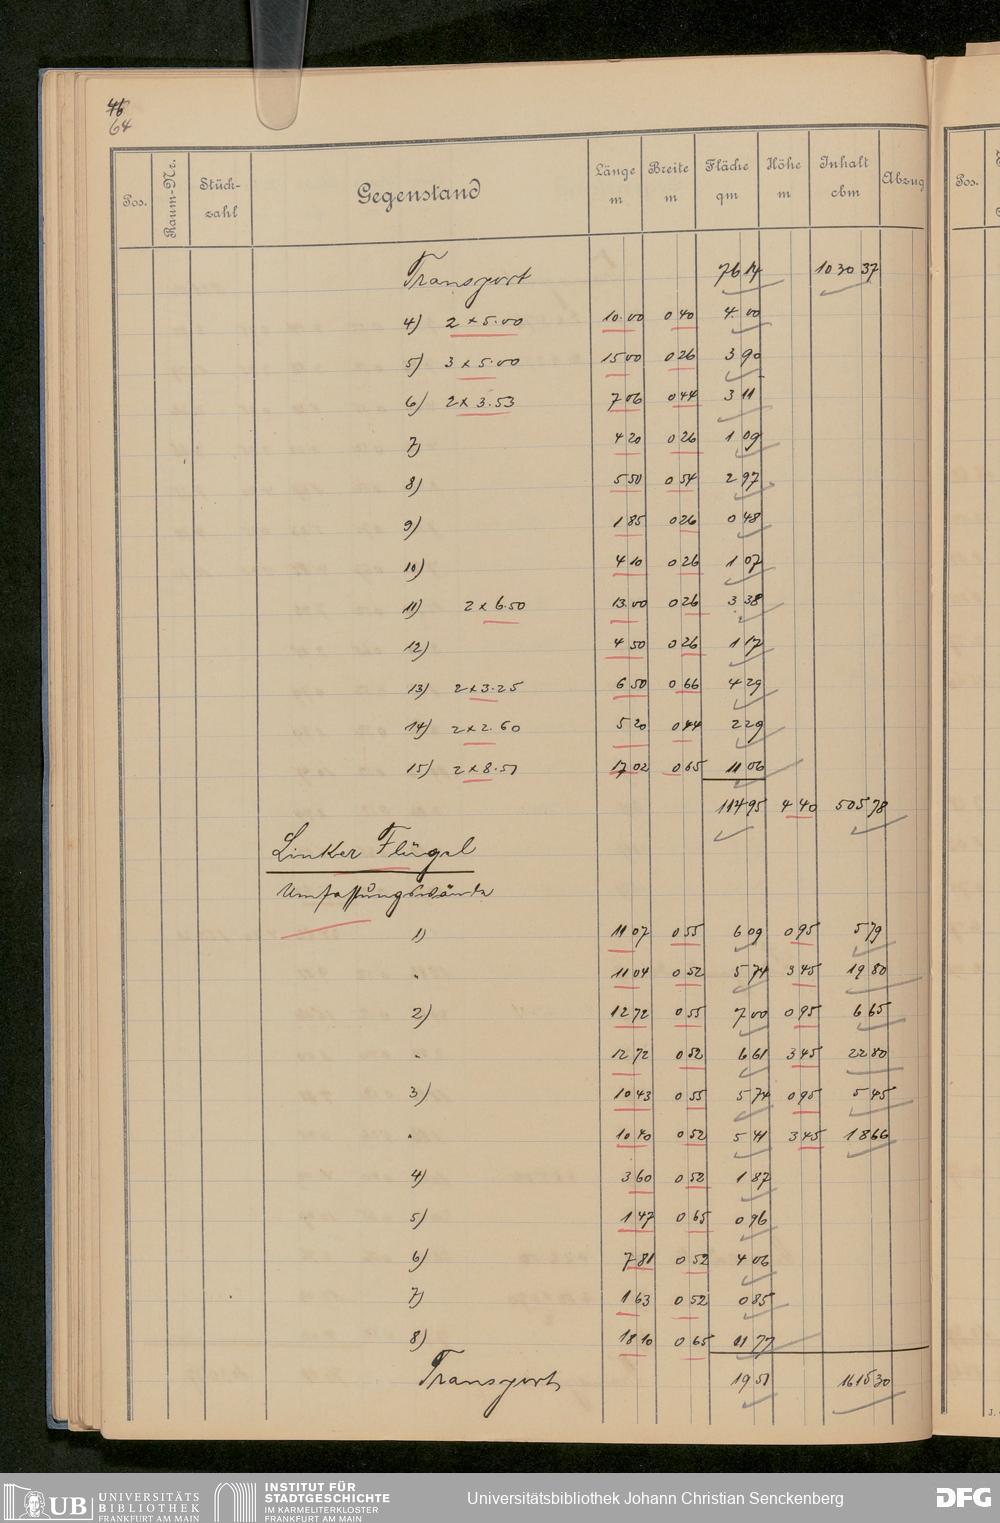 46
64
Pos. Raum-Nr. Stück-zahl Gegenstand Länge m Breite m Fläche qm Höhe m Inhalt cbm Abzug
Transport 76 14 1030 37
4) 2 x 5.00 10.00 0 40 4.00
5) 3 x 5.00 15 00 0 26 3 90
6) 2 x 3.53 7 06 0 44 3 11
7) 4 20 0 26 1 09
8) 5 50 0 54 2 97
9) 1 85 0 26 0 48
10) 4 10 0 26 1 07
11) 2 x 6.50 13.00 0 26 3 38
12) 4 50 0 26 1 17
13) 2 x 3.25 6 50 0 66 4 29
14) 2 x 2.60 5 20 0 44 2 29
15) 2 x 8.51 17 02 0 65 11 06
114 95 4 40 505 78
Linker Flügel
Umfassungswände
1) 11 07 0 55 6 09 0 95 5 79
" 11 04 0 52 5 74 3 45 19 80
2) 12 72 0 55 7 00 0 95 6 65
" 12 72 0 52 6 61 3 45 22 80
3) 10 43 0 55 5 74 0 95 5 45
" 10 40 0 52 5 41 3 45 18 66
4) 3 60 0 52 1 87
5) 1 47 0 65 0 96
6) 7 81 0 52 4 06
7) 1 63 0 52 0 85
8) 18 10 0 65 11 77
Transport 19 51 1615 30
Pos.
UB UNIVERSITÄTS
BIBLIOTHEK
FRANKFURT AM MAIN
INSTITUT FÜR
STADTGESCHICHTE
IM KARMELITERKLOSTER
FRANKFURT AM MAIN
Universitätsbibliothek Johann Christian Senckenberg
DFG